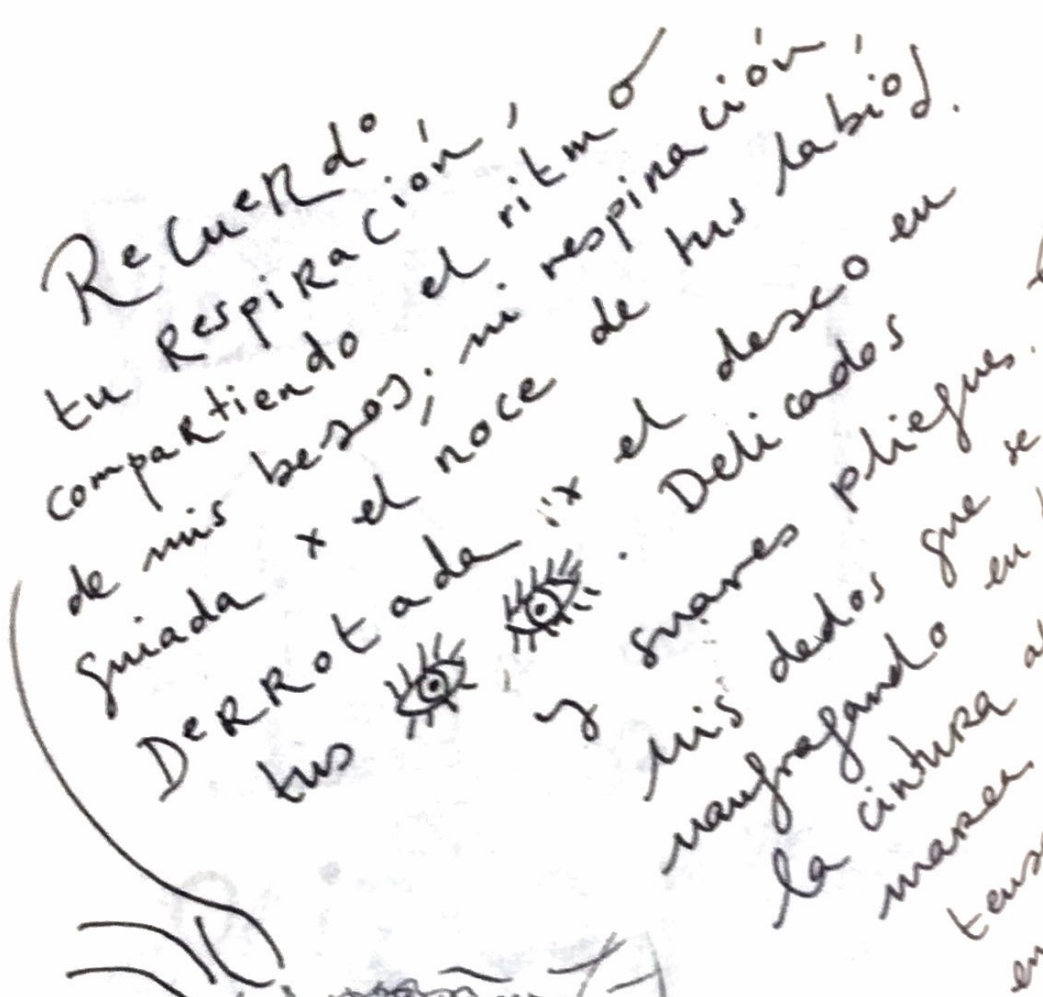 Recuerdo
tu Respiración,
compartiendo el ritmo
de mis besos; mi respiración,
guiada x el roce de tus labios.
Derrotada x el deseo en
tus
. Delicados
y suaves pliegues.
Mis dedos que se
naufragando en
la cintura
marea.
en